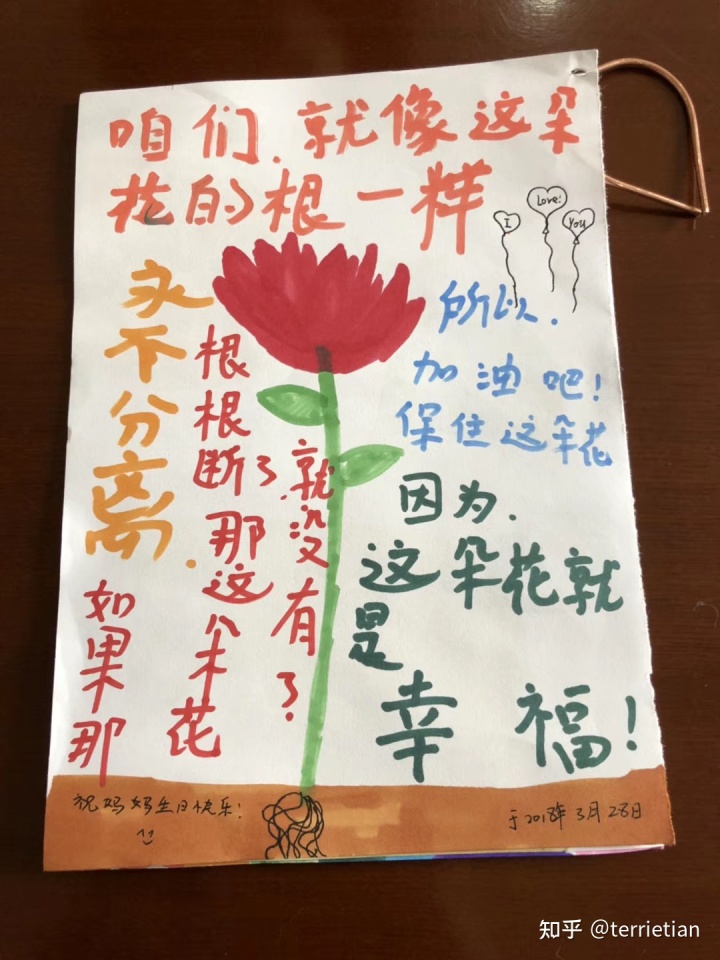 咱们.就像这朵
花的根一样
I Love! You
永不分离.
如果那
根根断了.那这朵花
就没有了?
所以.
加油吧!
保住这朵花
因为.
这朵花就
是
幸福!
祝妈妈生日快乐!
于2018年3月28日
知乎 @terrietian